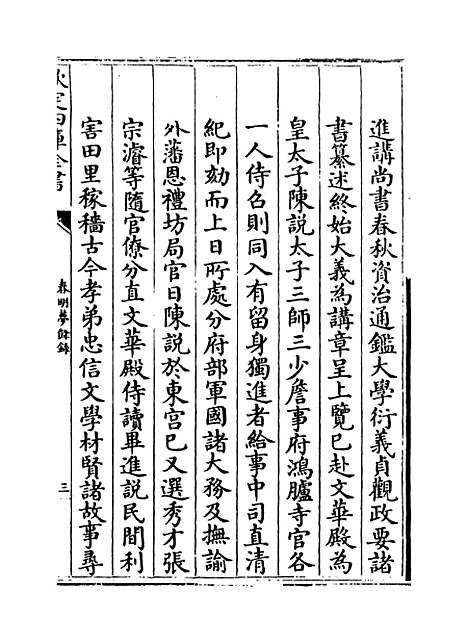 進講尚書春秋資治通鑑大學衍義貞觀政要諸
書纂述終始大義為講章呈上覽已赴文華殿為
皇太子陳説太子三師三少詹事府鴻臚寺官各
一人侍召則同入有留身獨進者給事中司直清
紀即劾而上日所處分府部軍國諸大務及撫諭
外藩恩禮坊局官日陳說於東宫已又選秀才張
宗濬等隨官僚分直文華殿侍讀畢進說民間利
害田里稼穡古今孝弟忠信文學材賢諸故事尋
欽定四庫全書
春明夢餘錄
三